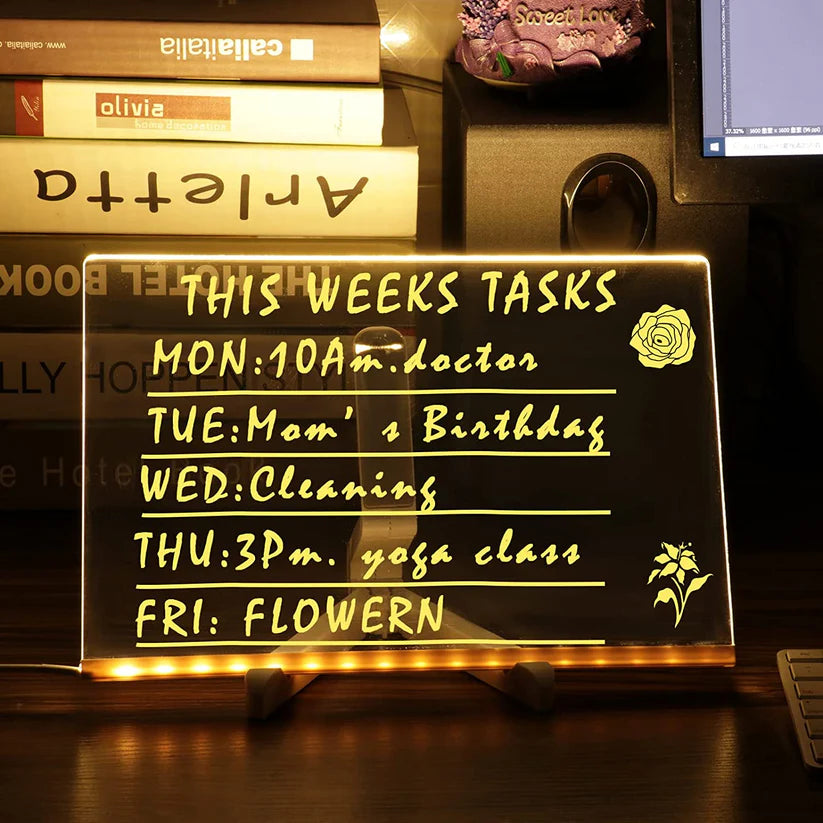 www. caliaitalia
caliaitalia
olivia
home decoration
Arletta
THE HOTEL BOOK
Sweet Love
37.32%
1600 像素 x 1600 像素 (96 ppi)
THIS WEEKS TASKS
MON:10Am.doctor
TUE:Mom's Birthday
WED:Cleaning
THU:3Pm. yoga class
FRI: FLOWERN